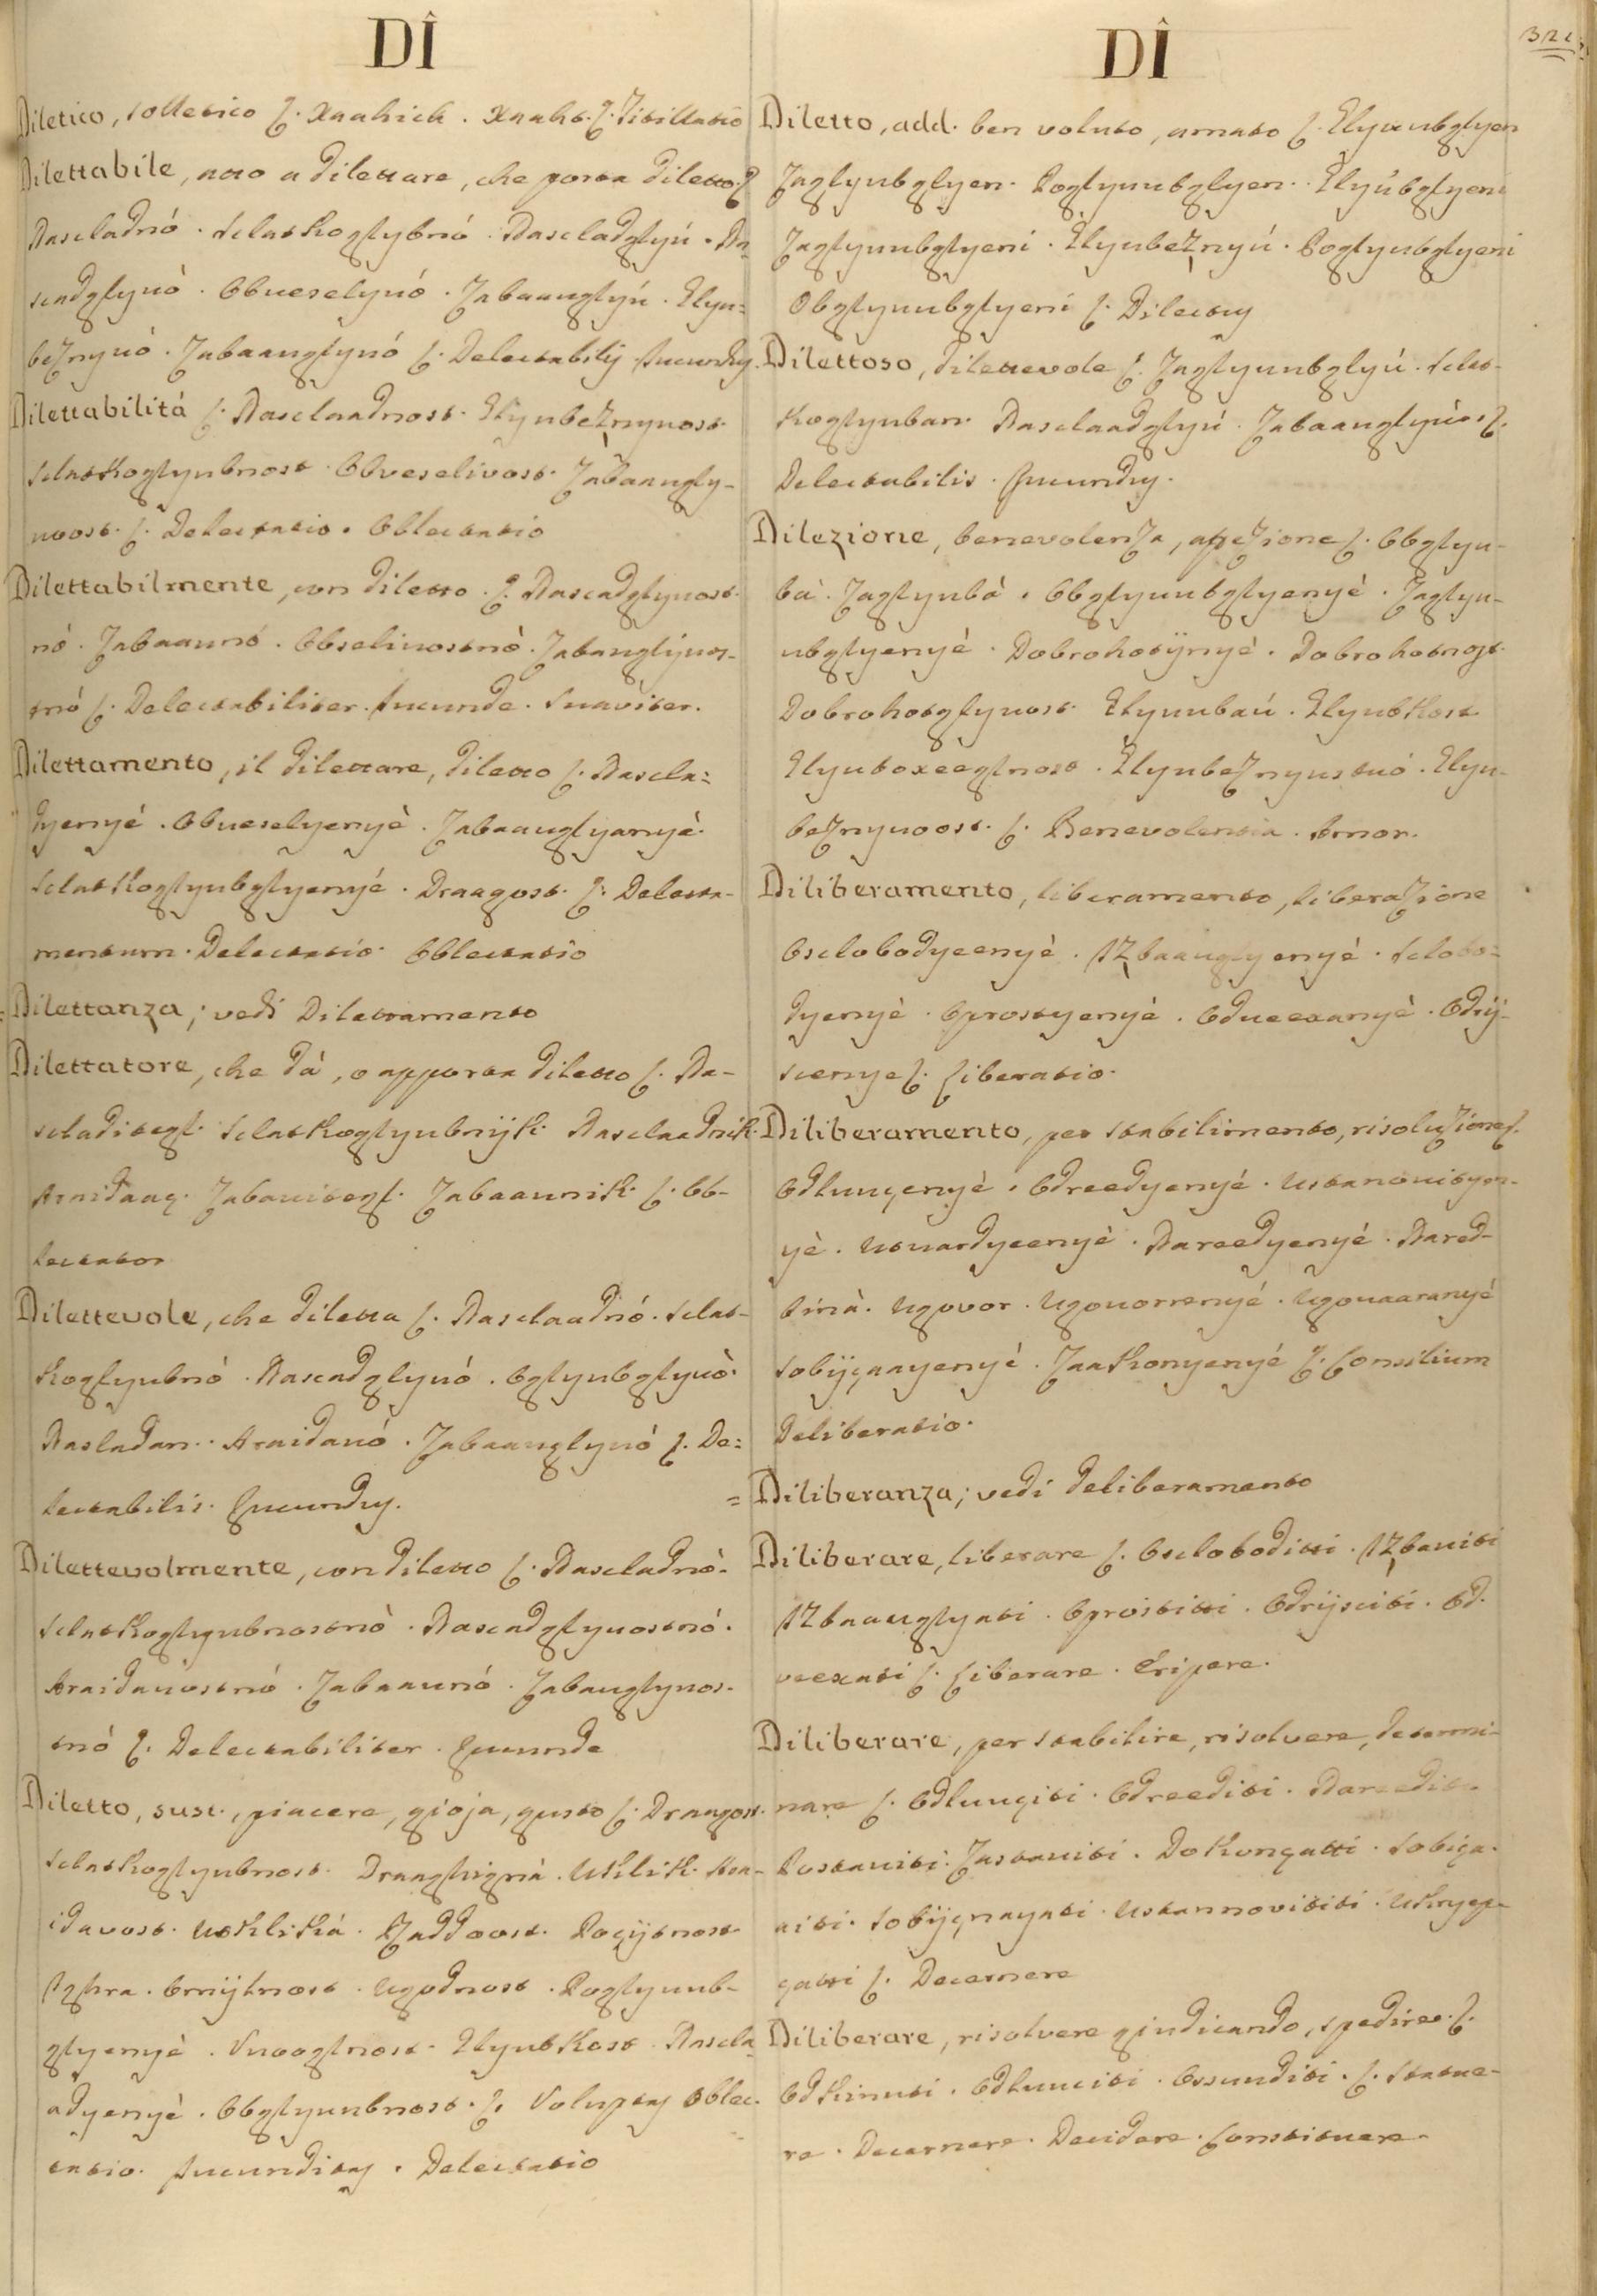 321
DÎ
Diletico, solletico ſ. Xaahich. Xaaht. ſ. Titillatio
Dilettabile, atto a dilettare, che porta diletto ſ
Nascladnó. Slatkogljubnó. Nascladgljú. Na-
scadgljivó. Obveseljivó. Zabaavgljú. Elyu-
beznyvó. Zabaavgljivó ſ. Delectabilis Jucundus.
Dilettabilitá ſ. Nasclaadnost. Elyubeznyvost.
Slatkoglyubnost. Obveselivost. Zabaavgly-
voost. ſ. Delectatio. Oblectatio
Dilettabilmente, con diletto. ſ. Nascadglyvost-
nó. Zabaavnó. Obselivostnò. Zabavglývos-
tnó ſ. Delectabiliter. Jucunde. Suaviter.
Dilettamento, il dilettare, diletto ſ. Nascla-
gyenyé. Obveselyenyè. Zabaavglyanyé.
Slatkoglyubglyenyé. Draagost. ſ. Delecta-
mentum. Delectatio. Oblectatio
Dilettanza; vedi Dilettamento
Dilettatore, che dá, o apporta diletto ſ. Na-
scladitegl. Slatkoglyubnijk. Nasclaadnik.
Araidaaç. Zabavitegl. Zabaavnik. ſ. Ob-
lectator
Dilettevole, che diletta ſ. Nasclaadnó. Slat-
koglyubnó. Nascadglyvó. Oglyubglyvò.
Nasladan. Araidavó. Zabaavglyvó ſ. De-
lectabilis. Jucundus.
Dilettevolmente, con diletto ſ. Nascladnò.
Slatkoglyubnostnò. Nascadglyvostnó.
Araidavostnó. Zabaavnó. Zabavglyvos-
tnó ſ. Delectabiliter. Jucunde
Diletto, sust., piacere, gioja, gusto ſ. Draagost.
Slatkoglyubnost. Draaghignà. Uxlik. Ara-
idavost. Usklikà. Raddoost. Poçijtnost.
Ighra. Omijlnost. Ugodnost. Poglyuub-
glyenyè. Vuooglnost. Elyubkost. Nascla-
adyenyè. Obglyuubnost. ſ. Voluptas Oblec-
tatio. Jucunditas. Delectatio
DÎ
Diletto, add. ben voluto, amato ſ. Elyuubglyen
Zaglyubglyen. Poglyuubglyen. Elyúbglyeni
Zaglyuubglyení. Elyubeznyú. Poglyubglyeni
Obglyuubglyení ſ. Dilectus
Dilettoso, dilettevole ſ. Zaglyuubglyú. Slat-
koglyuban. Nasclaadglyú. Zabaavglyvó ſ.
Delectabilis. Jucundus.
Dilezione, benevolenza, affezione ſ. Obglyu-
bà. Zaglyubà. Obglyuubglyenyé. Zaglyu-
ubglyenyé. Dobrohotijnyé. Dobrohotnost.
Dobrohotglyvost. Elyuubaú. Elyubkost
Elyutoxeeglnost. Elyubeznyustvó. Elyu-
beznyvoost. ſ. Benevolentia. Amor.
Diliberamento, liberamento, liberazione
Osclobodyeenyè. Izbaavglyenyé. Slobo-
dyenyè. Oprostyenyé. Odveexanyè. Odrij-
scenye ſ. Liberatio.
Diliberamento, per stabilimento, risoluzione ſ.
Odluuçenyè. Odreedyenyé. Ustanovityen-
yè. Utvardyeenyé. Nareedyenyé. Nared-
binà. Ugovor. Ugovorrenyé. Ugovaaranyé
Sobijçaayenyé. Zaakonyenyé ſ. Consilium
Deliberatio.
Diliberanza; vedi deliberamento
Diliberare, liberare ſ. Oscloboditti. Izbaviti
Izbaavglyati. Oprostitti. Odrijsciti. Od-
veexati ſ. Liberare. Eripere.
Diliberare, per stabilire, risolvere, determi-
nare ſ. Odluuçiti. Odreediti. Nareediti
Postaviti. Zastaviti. Dokonçatti. Sobiça-
aiti. Sobijçnayati. Ustannovititi. Ukrijep-
gatti ſ. Decernere
Diliberare, risolvere giudicando, spedire ſ.
Odkinuti. Odluuciti. Ossuuditi. ſ. Statue-
re. Decernere. Decidere. Constituere.